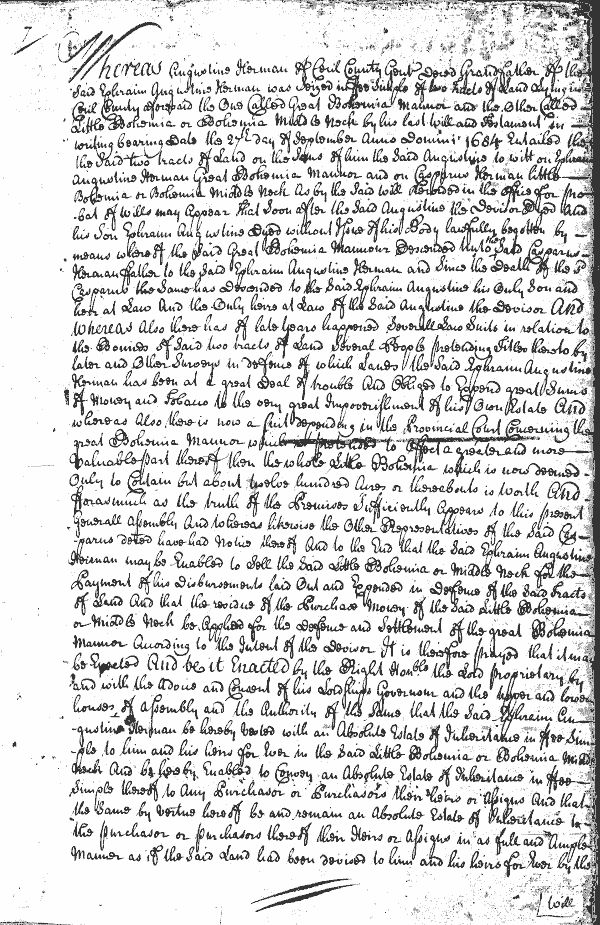 7
Whereas Augustine Herman of Cecil County Gent Deced Grandfather of the
Said Ephraim Augustine Herman was Seized in ffee Simple of two Tracts of Land Lying in
Cecil County aforesaid the One Called Great Bohemia Mannor and the Other Called
Little Bohemia or Bohemia Middle Neck by his last Will and Testament in
writing bearing Date the 27th day of September Anno Domini 1684 Entailed the
the Said two tracts of Land on the Sons of him the Said Augustine to witt on Ephraim
Augustine Herman Great Bohemia Mannor and on Casparus Herman little
Bohemia or Bohemia Middle Neck As by the Said Will Recorded in the Office for pro-
bat of Wills may Appear That Soon after the Said Augustine the Devisor Dyed And
his Son Ephraim Augustine Dyed without Issue of his Body lawfully begotten by
means whereof the Said Great Bohemia Mannour Descended unto the Said Casparus
Herman ffather to the Said Ephraim Augustine Herman and Since the Death of the Sd
Casparus the Same has Descended to the Said Ephraim Augustine his Only Son and
heir at Law And the Only heire at Law of the Said Augustine the Devisor And
Whereas Also there has of late Years happened Severall Law Suits in relation to
the Bounds of Said two tracts of Land Several People pretending Titles thereto by
later and Other Surveys in defence of which Lands the Said Ephraim Augustine
Herman has been at a great Deal of trouble And Obliged to Expend great Sums
of Money and Tobacco to the very great Impoverishment of his Own Estate And
whereas Also there is now a Suit depending in the Provincial Court Concerning the
great Bohemia Mannor which pretended to Effect a greater and more
Valuable part thereof then the whole Little Bohemia which is now deemed
Only to Contain but about twelve hundred Acres or thereabouts is worth And
fforasmuch as the truth of the Premises Sufficiently Appears to this present
Generall Assembly And whereas likewise the Other Representatives of the Said Cas-
parus deced have had Notice thereof And to the End that the Said Ephraim Augustine
Herman may be Enabled to Sell the Said Little Bohemia or Middle Neck for the
Payment of his Disbursements laid Out and Expended in Defence of the Said tracts
of Land And that the residue of the Purchase Money of the Said Little Bohemia
or Middle Neck be Applied for the Defence and Settlement of the great Bohemia
Mannor According to the Intent of the Devisor It is therefore prayed that it may
be Enacted And be it Enacted by the Right Honble the Lord Proprietary by
and with the Advice and Consent of his Lordships Governour and the upper and lower
houses of Assembly and the Authority of the Same that the Said Ephraim Au-
gustine Herman be hereby vested with an Absolute Estate of Inheritance in ffee Sim-
ple to him and his heirs for Ever in the Said Little Bohemia or Bohemia Middle
Neck And be hereby Enabled to Convey an Absolute Estate of Inheritance in ffee
Simple thereof to Any Purchasor or Purchasors their heirs or Assigns And that
the Same by vertue hereof be and remain an Absolute Estate of Inheritance to
the purchasor or purchasors thereof their Heirs or Assigns in as full and Ample
Manner as if the Said Land had been devised to him and his heirs for Ever by the
Will